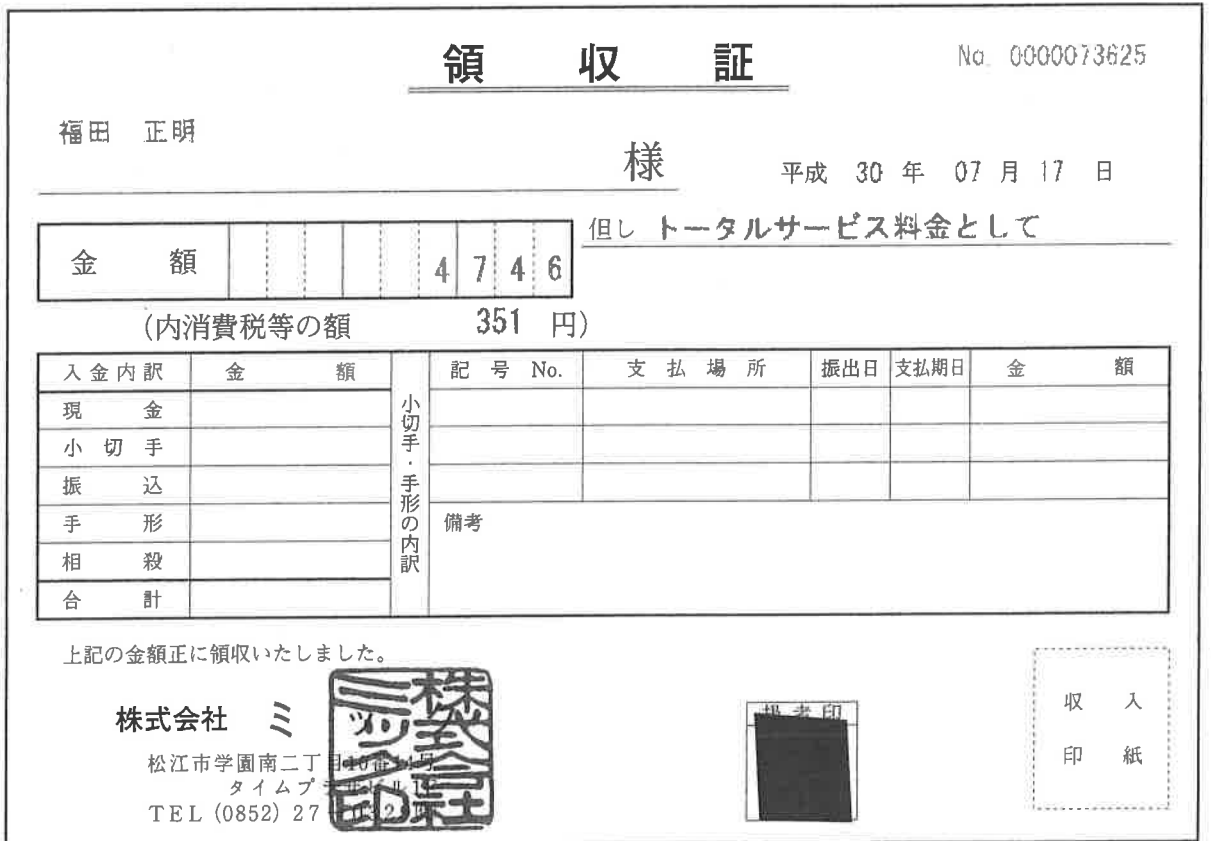 領収証
No. 0000073625
福田 正明
様
平成 30 年 07 月 17 日
金額 4746
但し トータルサービス料金として
(内消費税等の額 351 円)
入金内訳 金額
現金
小切手
振込
手形
相殺
合計
小切手・手形の内訳
記号No. 支払場所 振出日 支払期日 金額
備考
上記の金額正に領収いたしました。
株式会社 ミ
株式会社ミック印
松江市学園南二丁目10番14号
タイムプラザビル1F
TEL (0852) 27
扱者印
収入
印紙